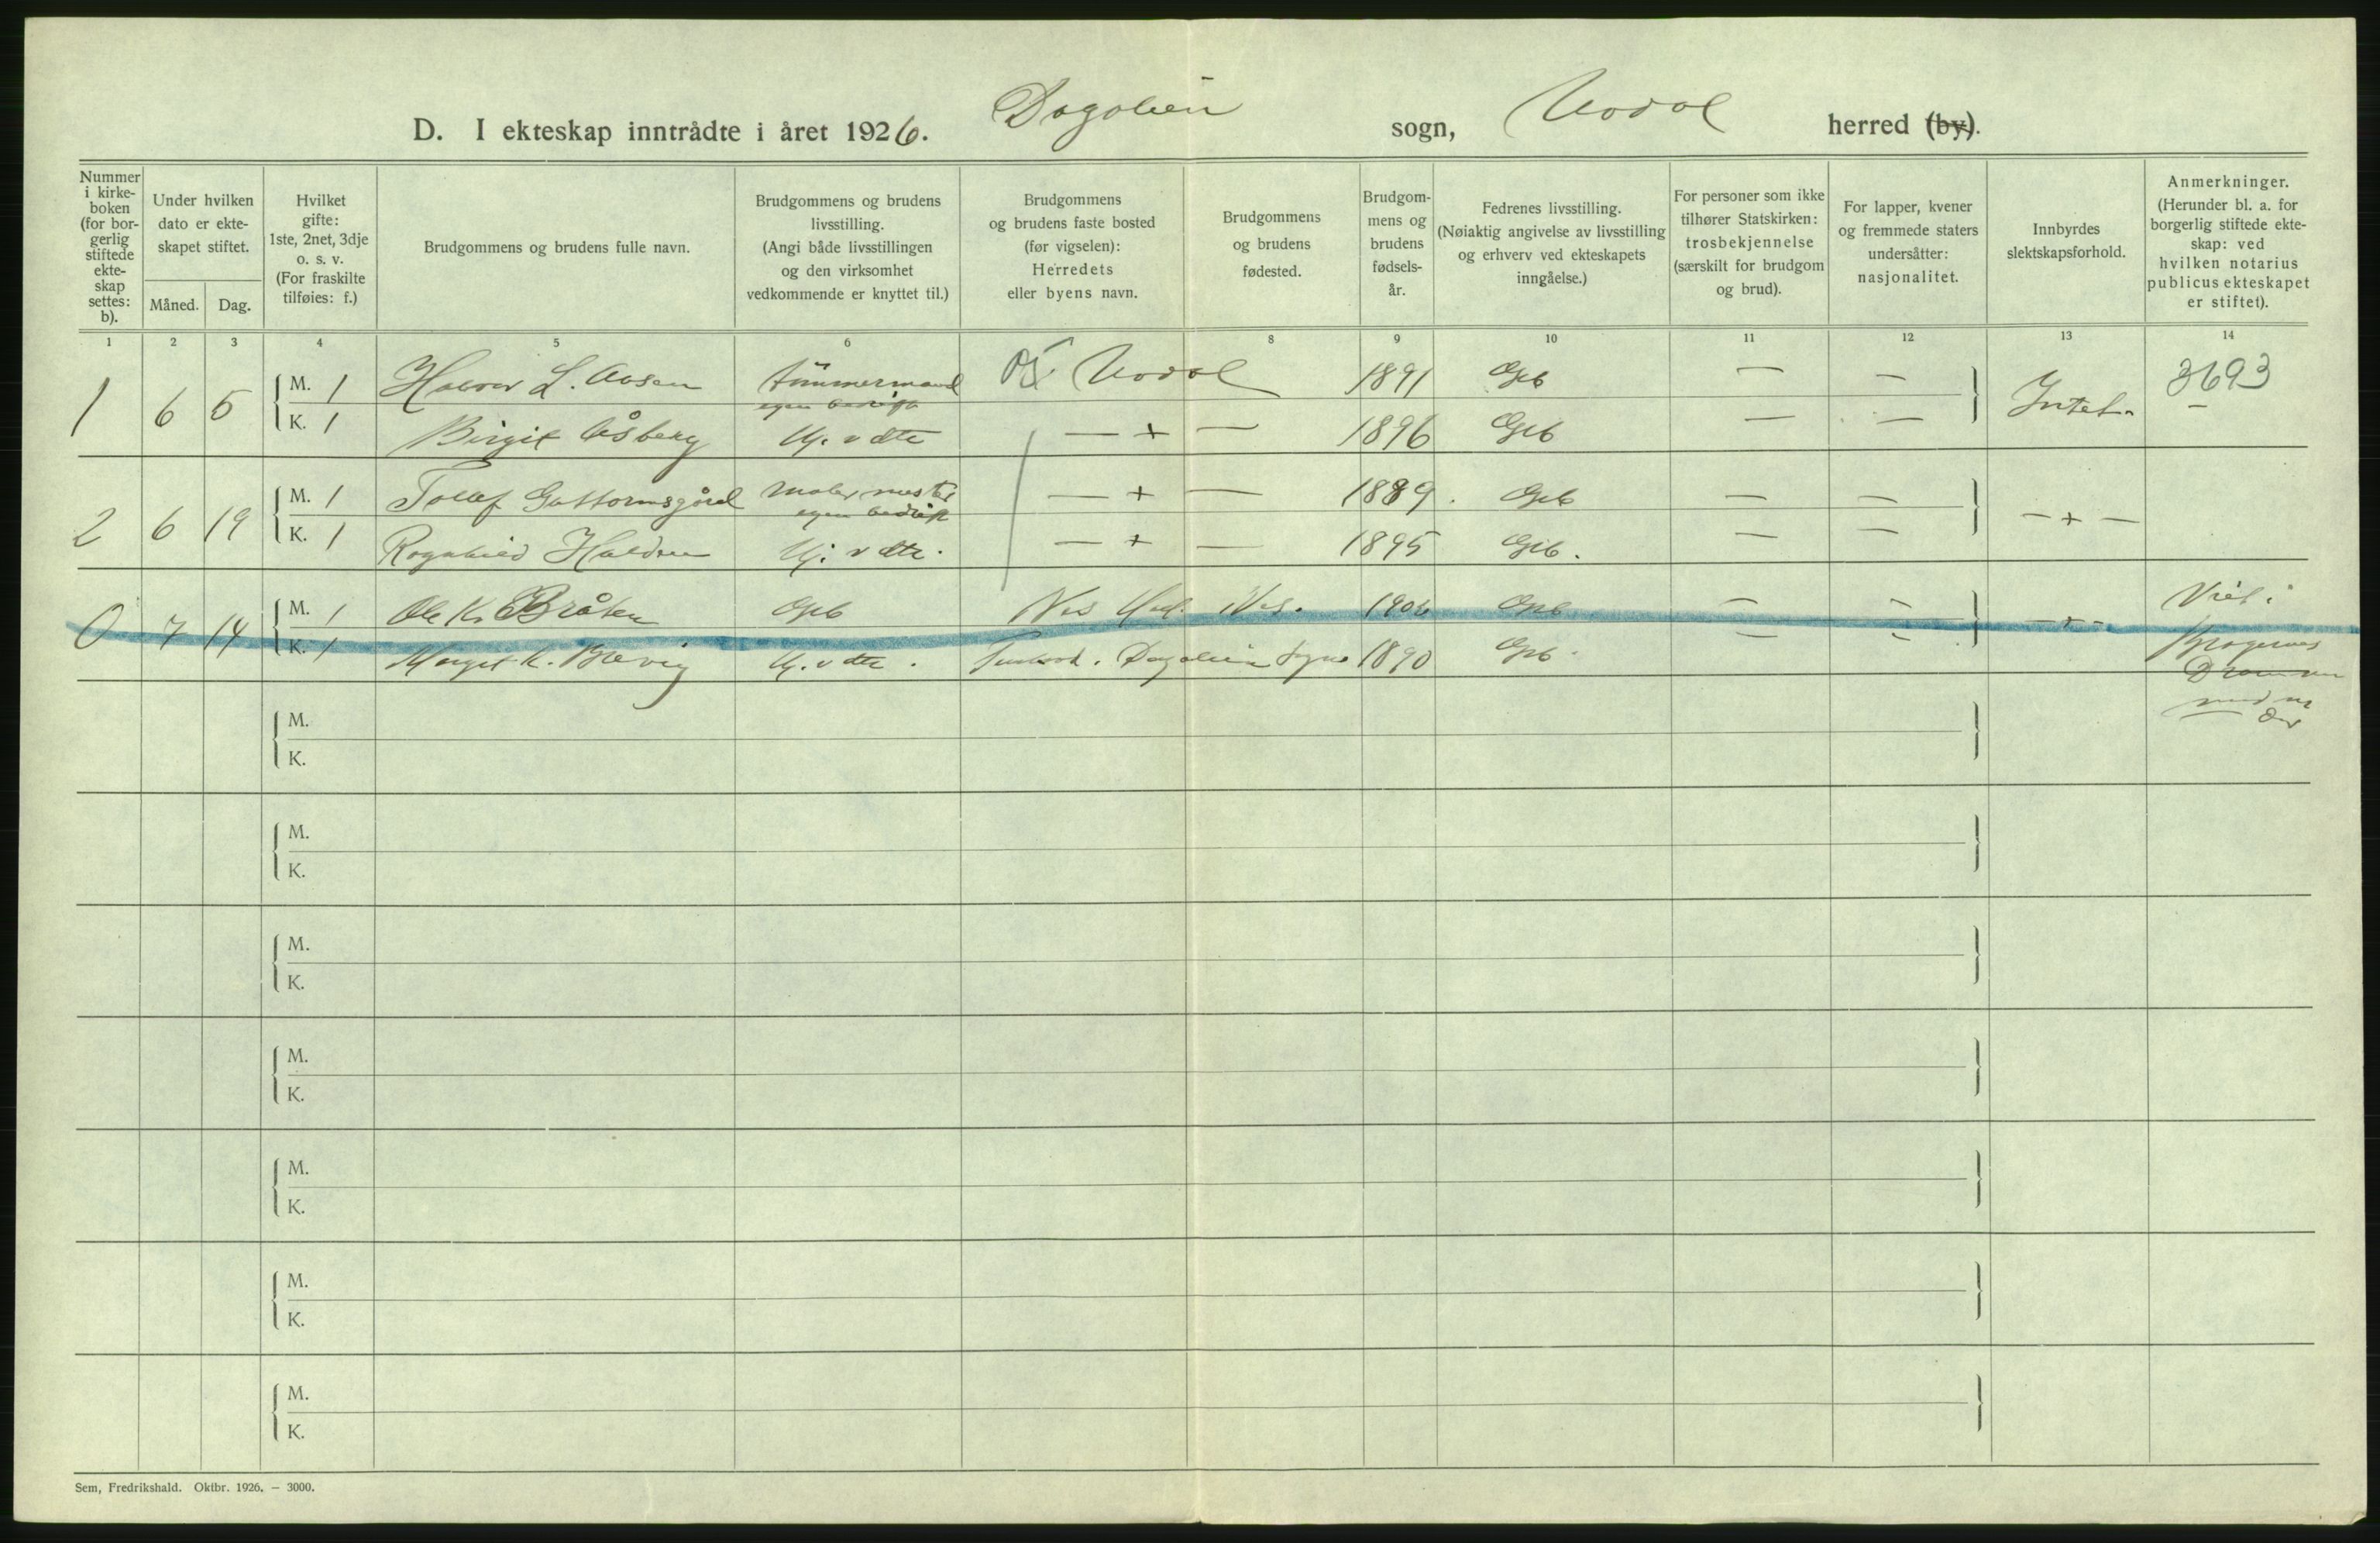 D. I ekteskap inntrådte i året 1926. Dagalien sogn, Uvdal herred (by).
Nummer i kirkeboken (for borgerlig stiftede ekteskap settes: b).
Under hvilken dato er ekteskapet stiftet.
Måned. Dag.
Hvilket gifte: 1ste, 2net, 3dje o. s. v. (For fraskilte tilføies: f.)
Brudgommens og brudens fulle navn.
Brudgommens og brudens livsstilling. (Angi både livsstillingen og den virksomhet vedkommende er knyttet til.)
Brudgommens og brudens faste bosted (før vigselen): Herredets eller byens navn.
Brudgommens og brudens fødested.
Brudgommens og brudens fødselsår.
Fedrenes livsstilling. (Nøiaktig angivelse av livsstilling og erhverv ved ekteskapets inngåelse.)
For personer som ikke tilhører Statskirken: trosbekjennelse (særskilt for brudgom og brud).
For lapper, kvener og fremmede staters undersåtter: nasjonalitet.
Innbyrdes slektskapsforhold.
Anmerkninger. (Herunder bl. a. for borgerlig stiftede ekteskap: ved hvilken notarius publicus ekteskapet er stiftet).
1 2 3 4 5 6 8 9 10 11 12 13 14
1 6 5 M. 1 Halvor L. Aasen tømmermand egen bedrift Uvdal 1891 Gb — — Intet. 3693
K. 1 Birgit Åsberg Hj. v dtr — + — 1896 Gb — —
2 6 19 M. 1 Tollef Guttormsgård Malermester egen bedrift — + — 1889. Gb — — — + —
K. 1 Ragnhild Halden Hj. v dtr. — + — 1895 Gb. — —
0 7 14 M. 1 Ole K. Bråten Gb Nes Hal. Nes. 190 Gb — — — + — Viet i
K. 1 Margit K. Brevig Hj. v dtr. Dagalien sogn 1890 Gb. — — Bragernes
Drammen
M.
K.
M.
K.
M.
K.
M.
K.
M.
K.
M.
K.
M.
K.
Sem, Fredrikshald. Oktbr. 1926. — 3000.